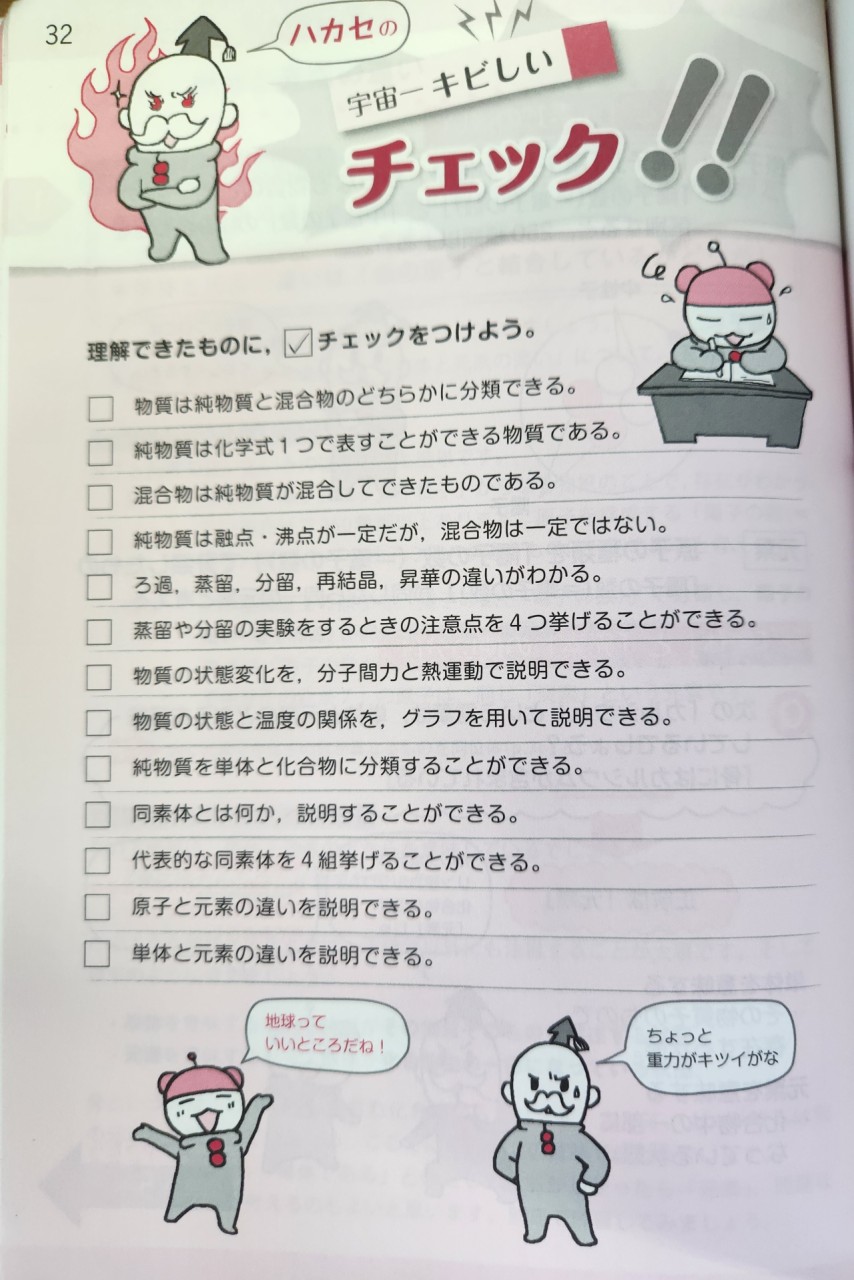 32
ハカセの
宇宙一キビしい
チェック!!
理解できたものに，チェックをつけよう。
物質は純物質と混合物のどちらかに分類できる。
純物質は化学式1つで表すことができる物質である。
混合物は純物質が混合してできたものである。
純物質は融点・沸点が一定だが，混合物は一定ではない。
ろ過，蒸留，分留，再結晶，昇華の違いがわかる。
蒸留や分留の実験をするときの注意点を4つ挙げることができる。
物質の状態変化を，分子間力と熱運動で説明できる。
物質の状態と温度の関係を，グラフを用いて説明できる。
純物質を単体と化合物に分類することができる。
同素体とは何か，説明することができる。
代表的な同素体を4組挙げることができる。
原子と元素の違いを説明できる。
単体と元素の違いを説明できる。
地球って
いいところだね！
ちょっと
重力がキツイがな